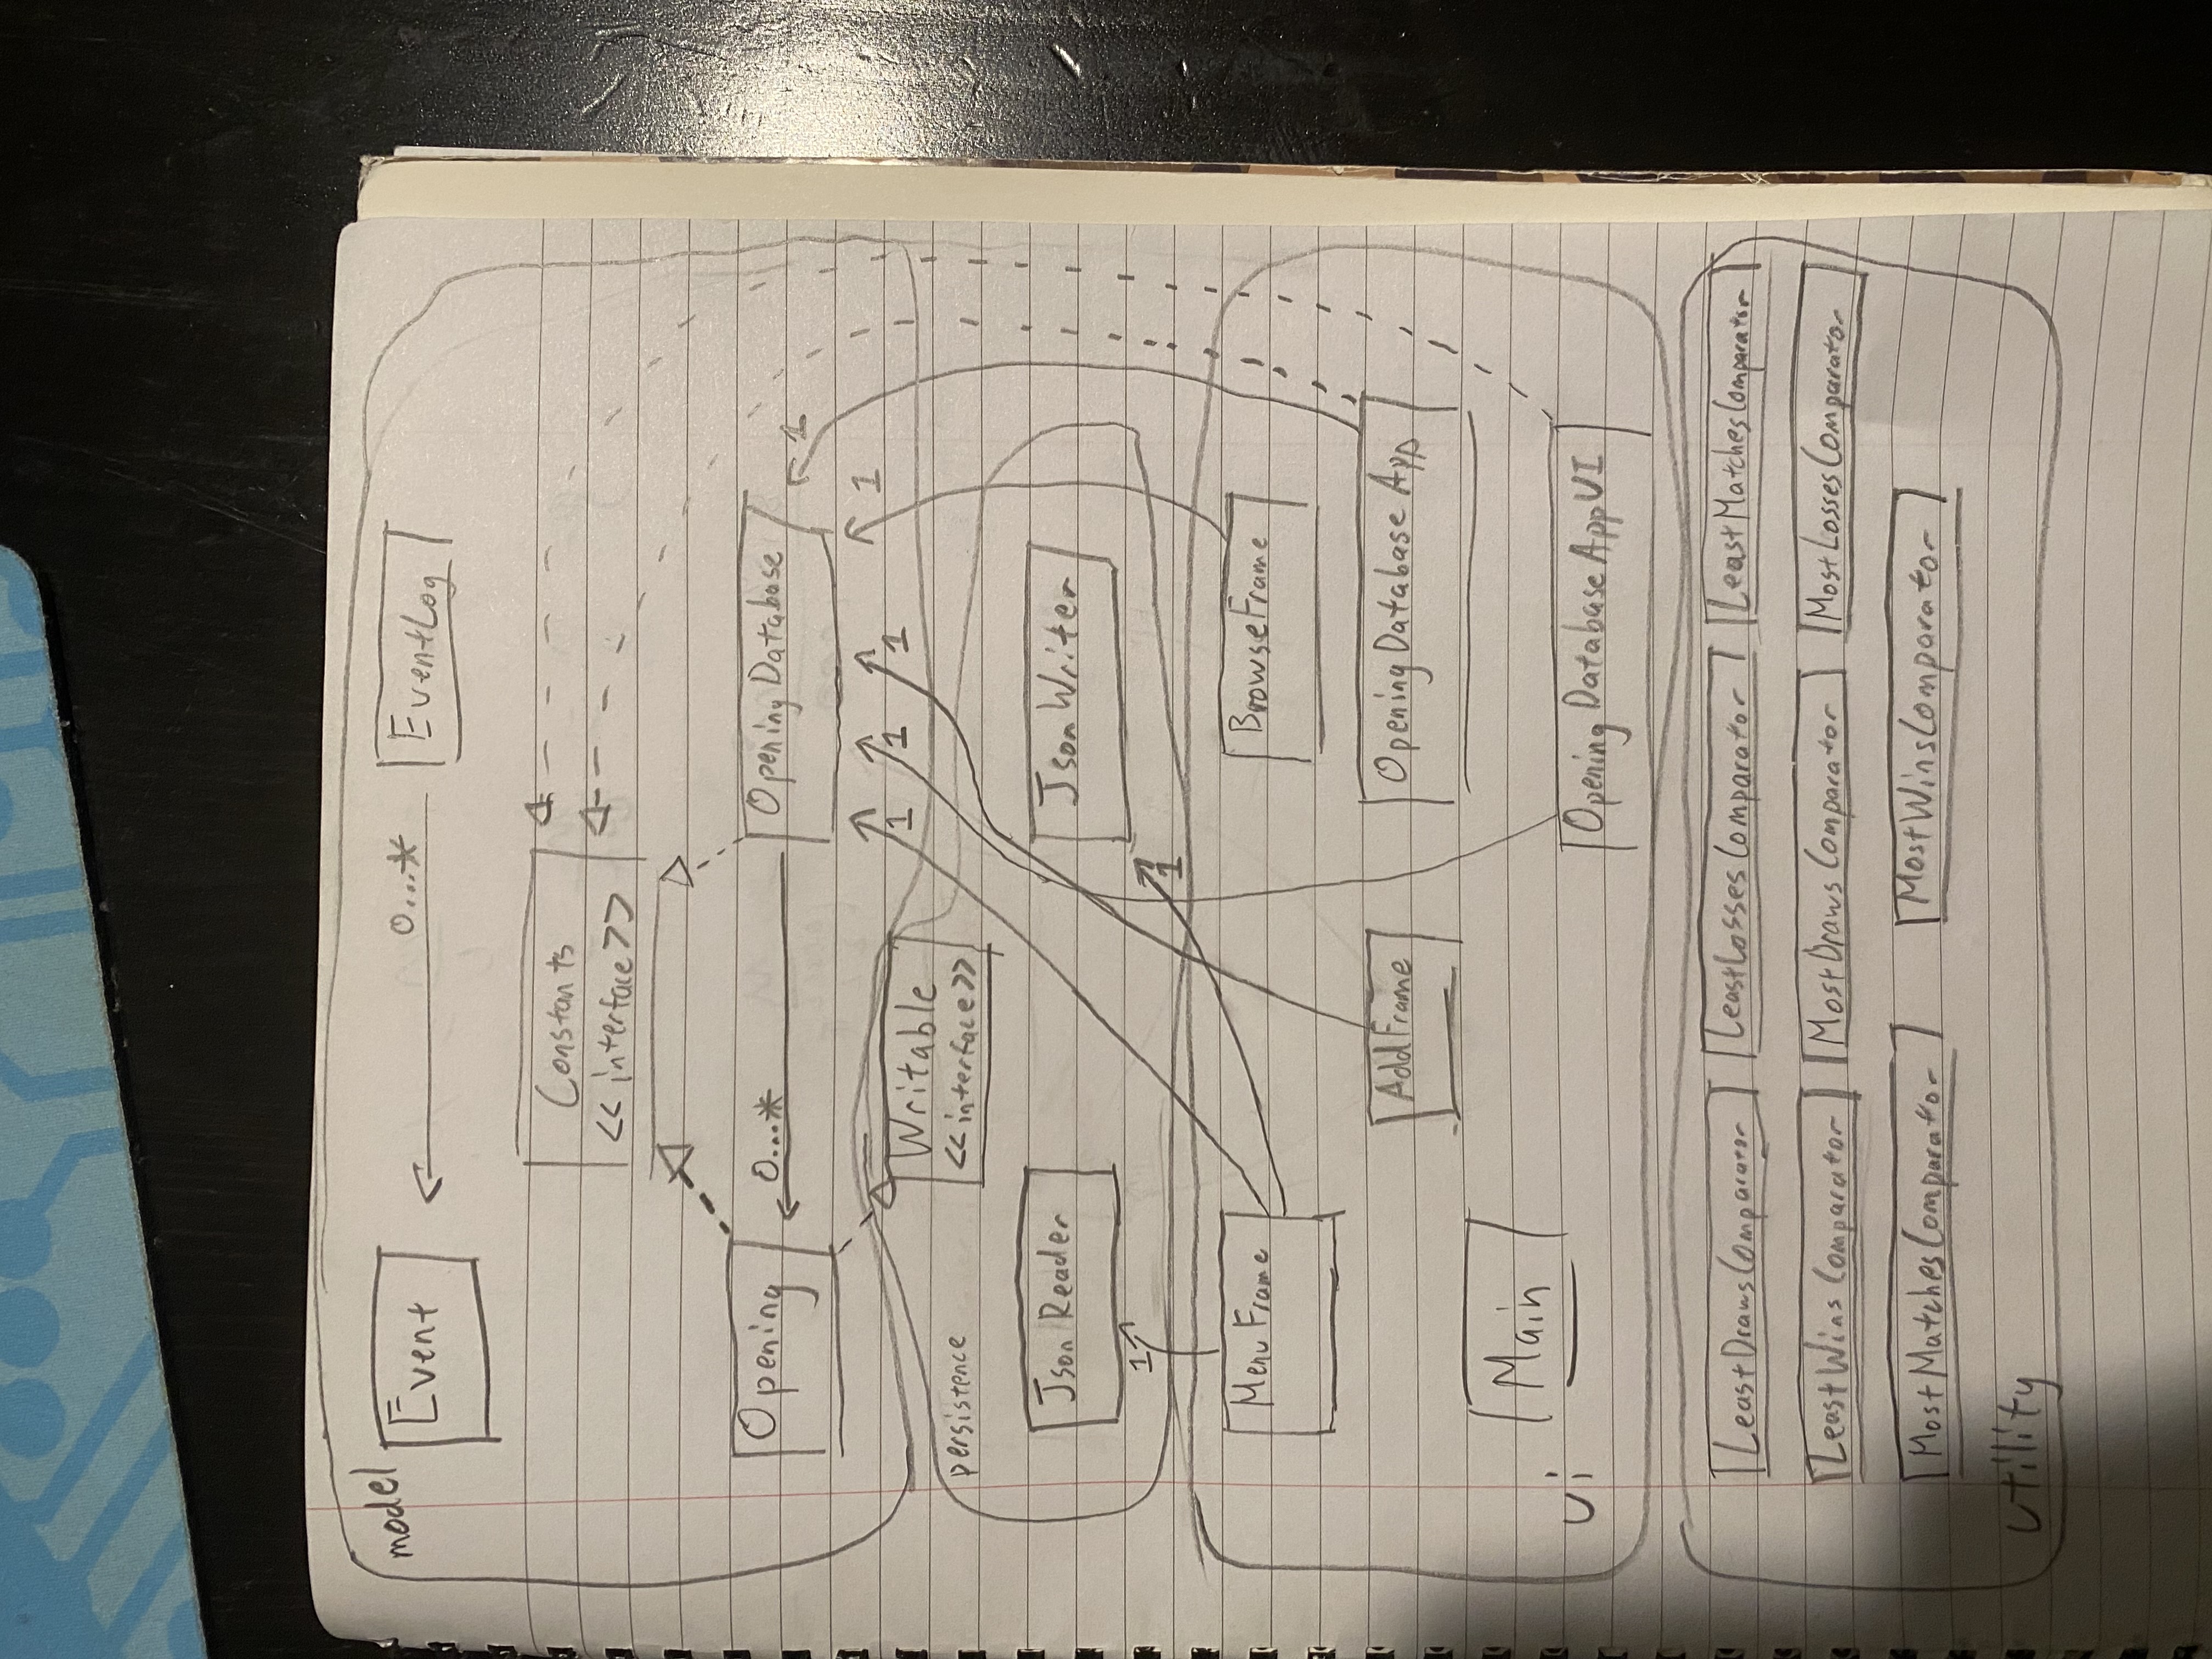 model
Event
0...*
EventLog
Constants
<< interface >>
Opening
0...*
OpeningDatabase
1
1
1
1
1
Writable
<< interface >>
persistence
Json Reader
JsonWriter
1
1
Menu Frame
BrowseFrame
AddFrame
OpeningDatabase App
Main
ui
Opening Database AppUI
LeastDrawsComparator
LeastLossesComparator
LeastMatchesComparator
LeastWinsComparator
MostDrawsComparator
MostLossesComparator
MostMatchesComparator
MostWinsComparator
utility